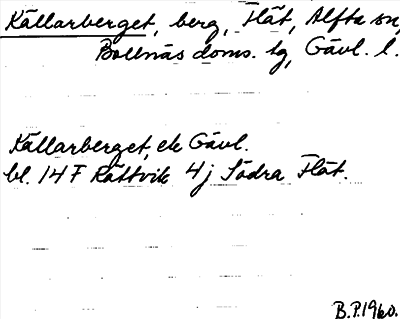 Källarberget, berg, Flät, Alfta sn,
Bollnäs doms. tg, Gävl. l.
Källarberget, ek Gävl.
bl. 14 F Rättvik 4j Södra Flät.
B.P. 1960.